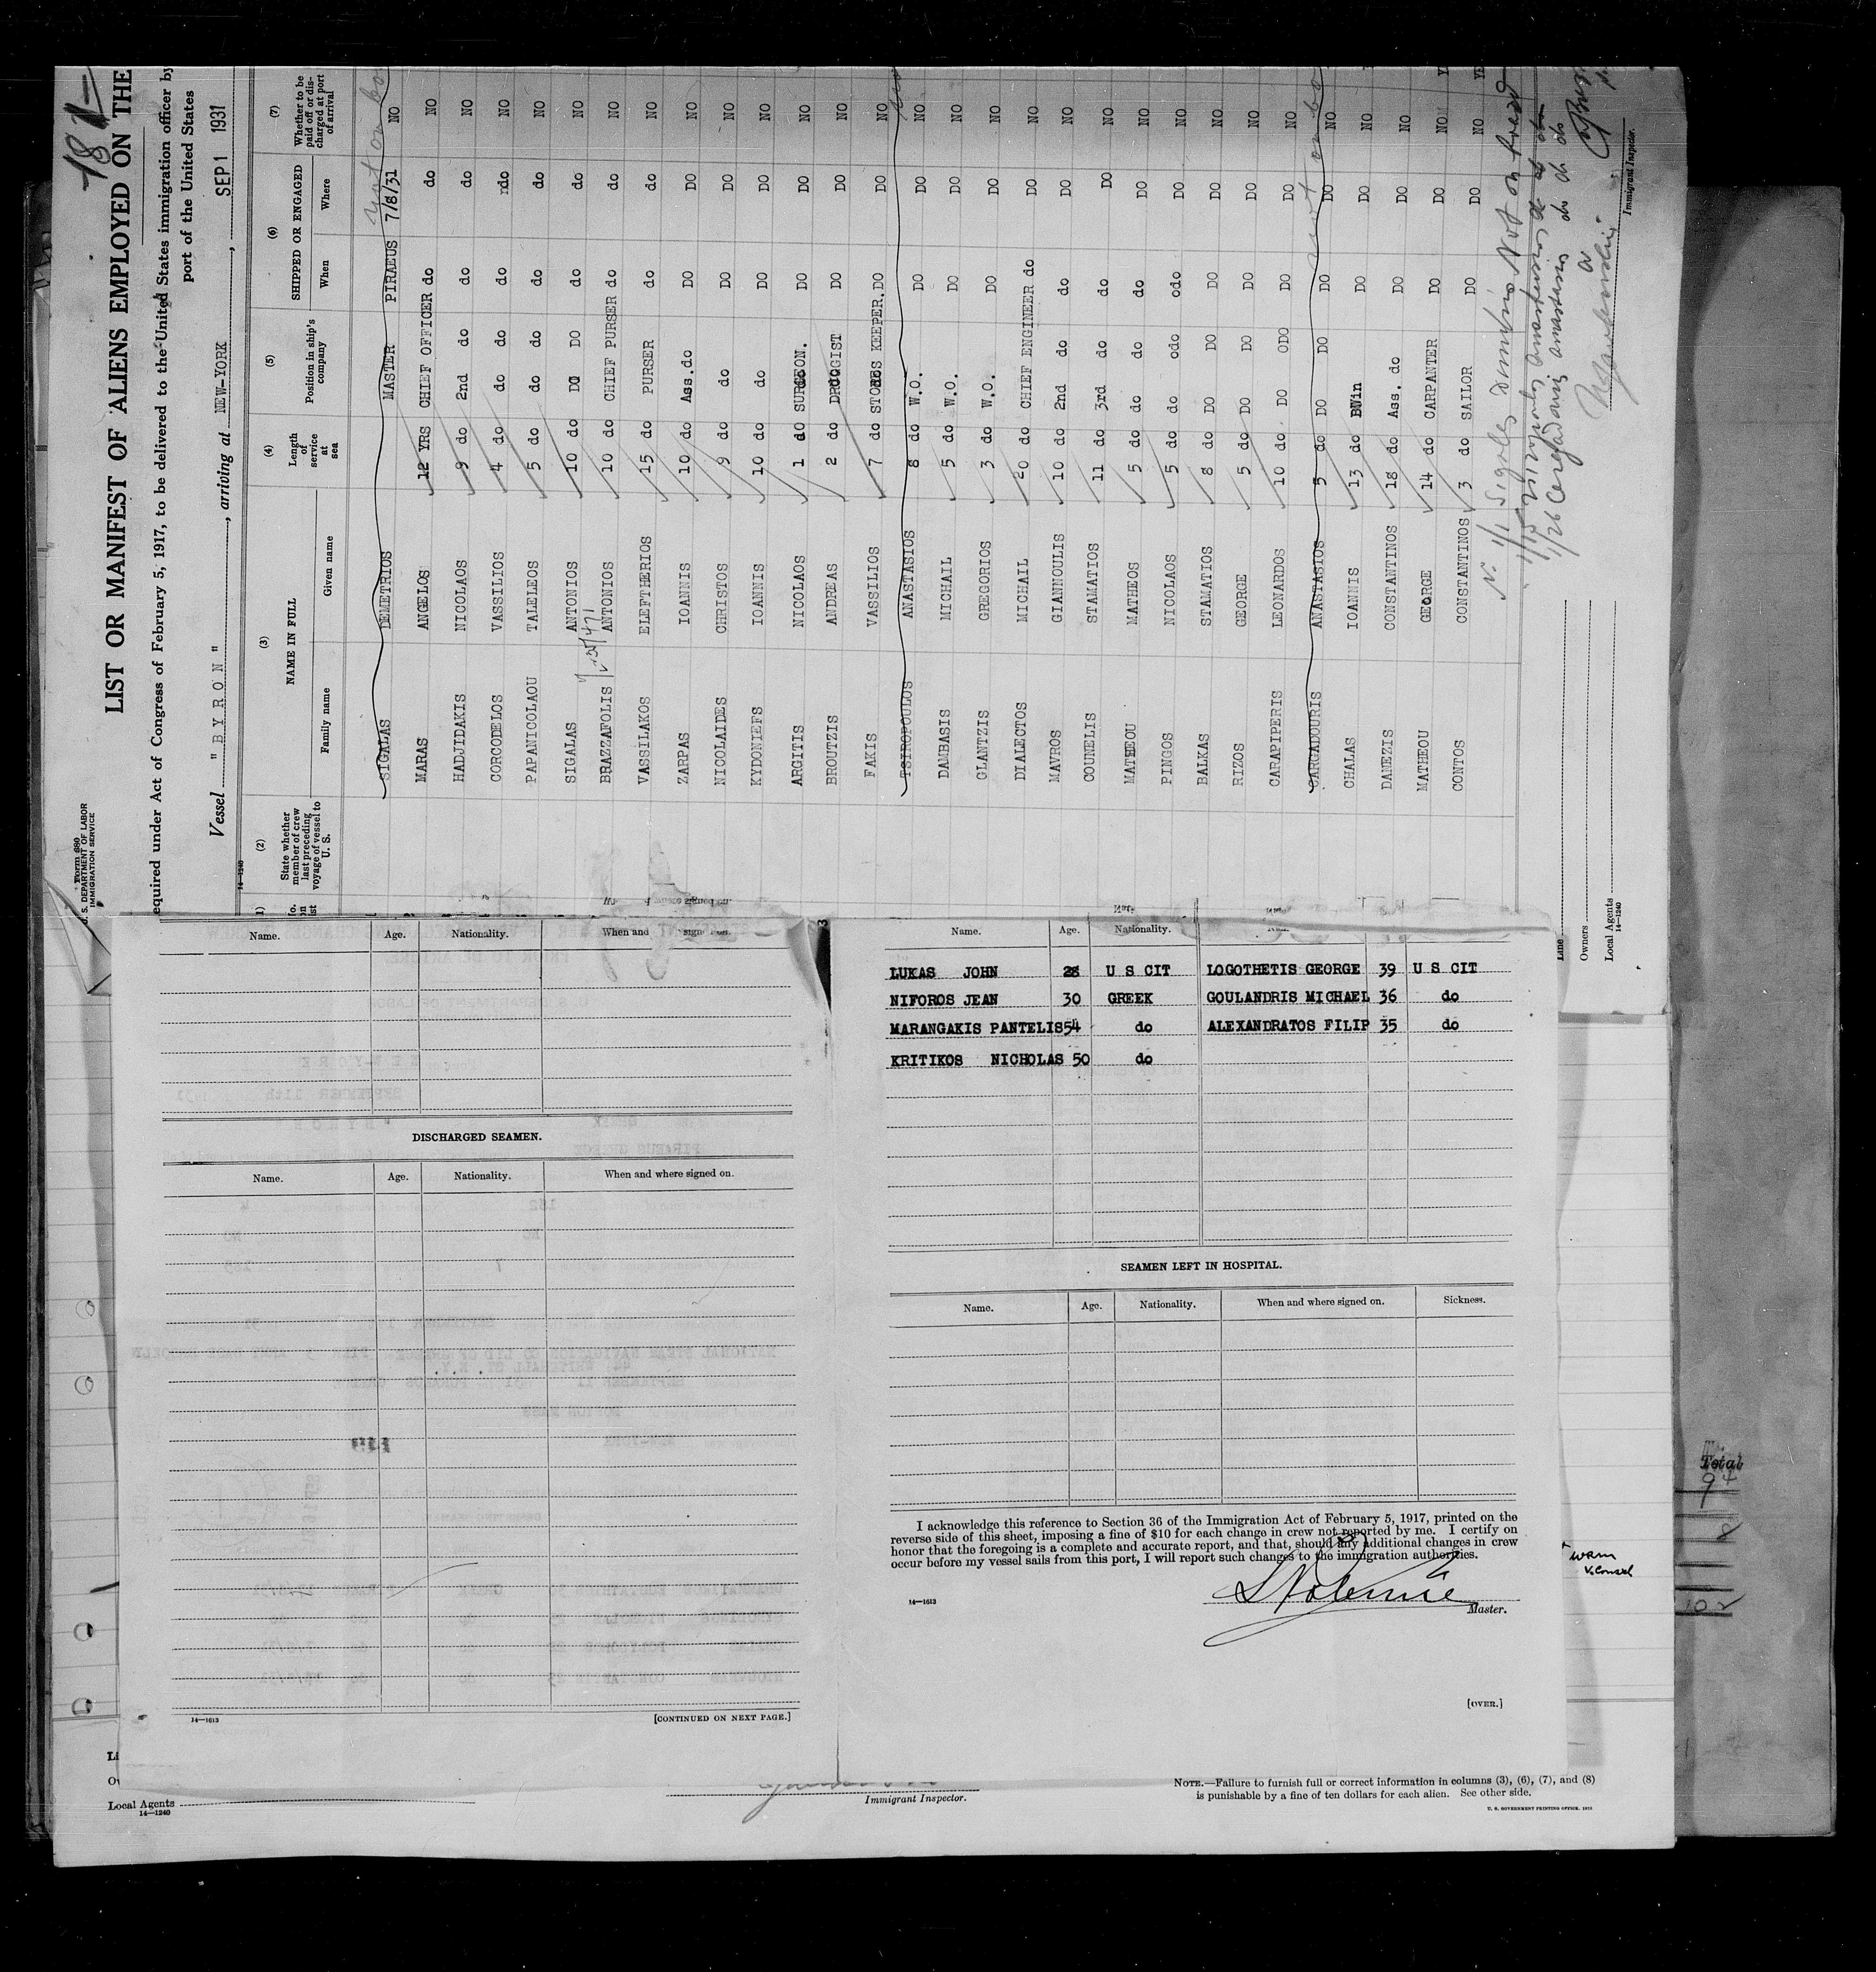 Form 680
U. S. DEPARTMENT OF LABOR
IMMIGRATION SERVICE
181
LIST OR MANIFEST OF ALIENS EMPLOYED ON THE
equired under Act of Congress of February 5, 1917, to be delivered to the United States immigration officer by
port of the United States
Vessel "BYRON", arriving at NEW-YORK, SEP 1 1931
14-1240
(2) (3) (4) (5) (6) (7)
State whether member of crew last preceding voyage of vessel to U. S.
NAME IN FULL
Family name Given name
Length of service at sea
Position in ship's company
SHIPPED OR ENGAGED
When Where
Whether to be paid off or discharged at port of arrival
SIGALAS DEMETRIOS MASTER PIRAEUS 7/8/31 NO
MARAS ANGELOS 12 YRS CHIEF OFFICER do do NO
HADJIDAKIS NICOLAOS 9 do 2nd do do do NO
CORCODELOS VASSILIOS 4 do do do do do NO
PAPANICOLAOU TALELEOS 5 do do do do do NO
SIGALAS ANTONIOS 10 do DO DO do do NO
BRAZZAFOLIS ANTONIOS 10 do CHIEF PURSER do do NO
VASSILAKOS ELEFTHERIOS 15 do PURSER do do NO
ZARPAS IOANNIS 10 do Ass. do DO DO NO
NICOLAIDES CHRISTOS 9 do do DO DO NO
KYDONIEFS IOANNIS 10 do do DO DO NO
ARGITIS NICOLAOS 1 do SURGEON. DO DO NO
BROUTZIS ANDREAS 2 do DRUGGIST DO DO NO
FAKIS VASSILIOS 7 do STORES KEEPER. DO DO NO
TSIROPOULOS ANASTASIOS 8 do W.O. DO DO
DAMBASIS MICHAIL 5 do W.O. DO DO NO
GLANTZIS GREGORIOS 3 do W.O. DO DO NO
DIALECTOS MICHAIL 20 do CHIEF ENGINEER do DO NO
MAVROS GIANNOULIS 10 do 2nd do do DO NO
COUNELIS STAMATIOS 11 do 3rd do do DO NO
MATHEOU MATHEOS 5 do do do do DO NO
PINGOS NICOLAOS 5 do do odo odo DO NO
BALKAS STAMATIOS 8 do DO DO DO DO NO
RIZOS GEORGE 5 do DO DO DO DO NO
CARAPIPERIS LEONARDOS 10 do DO ODO DO DO NO
CARGADOURIS ANASTASIOS 5 do DO DO DO DO NO
CHALAS IOANNIS 13 do DO DO NO
DANEZIS CONSTANTINOS 18 do Ass. do DO DO NO
MATHEOU GEORGE 14 do CARPANTER DO DO NO
CONTOS CONSTANTINOS 3 do SAILOR DO DO NO
Not on board
Immigrant Inspector.
Line
Owners
Local Agents
14-1240
Name. Age. Nationality. When and
DISCHARGED SEAMEN.
Name. Age. Nationality. When and where signed on.
14—1613 [CONTINUED ON NEXT PAGE.]
Name. Age. Nationality.
LUKAS JOHN 28 U S CIT LOGOTHETIS GEORGE 39 U S CIT
NIFOROS JEAN 30 GREEK GOULANDRIS MICHAEL 36 do
MARANGAKIS PANTELIS 54 do ALEXANDRATOS FILIP 35 do
KRITIKOS NICHOLAS 50 do
SEAMEN LEFT IN HOSPITAL.
Name. Age. Nationality. When and where signed on. Sickness.
I acknowledge this reference to Section 36 of the Immigration Act of February 5, 1917, printed on the
reverse side of this sheet, imposing a fine of $10 for each change in crew not reported by me. I certify on
honor that the foregoing is a complete and accurate report, and that, should any additional changes in crew
occur before my vessel sails from this port, I will report such changes to the immigration authorities.
14—1613
Master.
[OVER.]
Total
Local Agents
14—1240
Immigrant Inspector.
NOTE.—Failure to furnish full or correct information in columns (3), (6), (7), and (8)
is punishable by a fine of ten dollars for each alien. See other side.
U. S. GOVERNMENT PRINTING OFFICE.